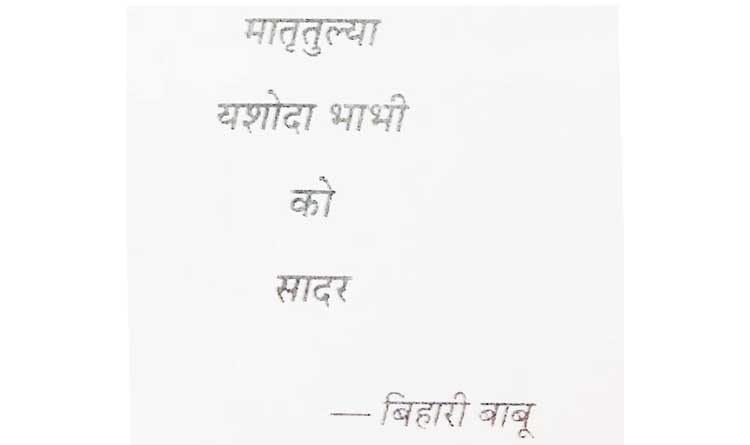 मातृतुल्या
यशोदा भाभी
को
सादर
— बिहारी बाबू